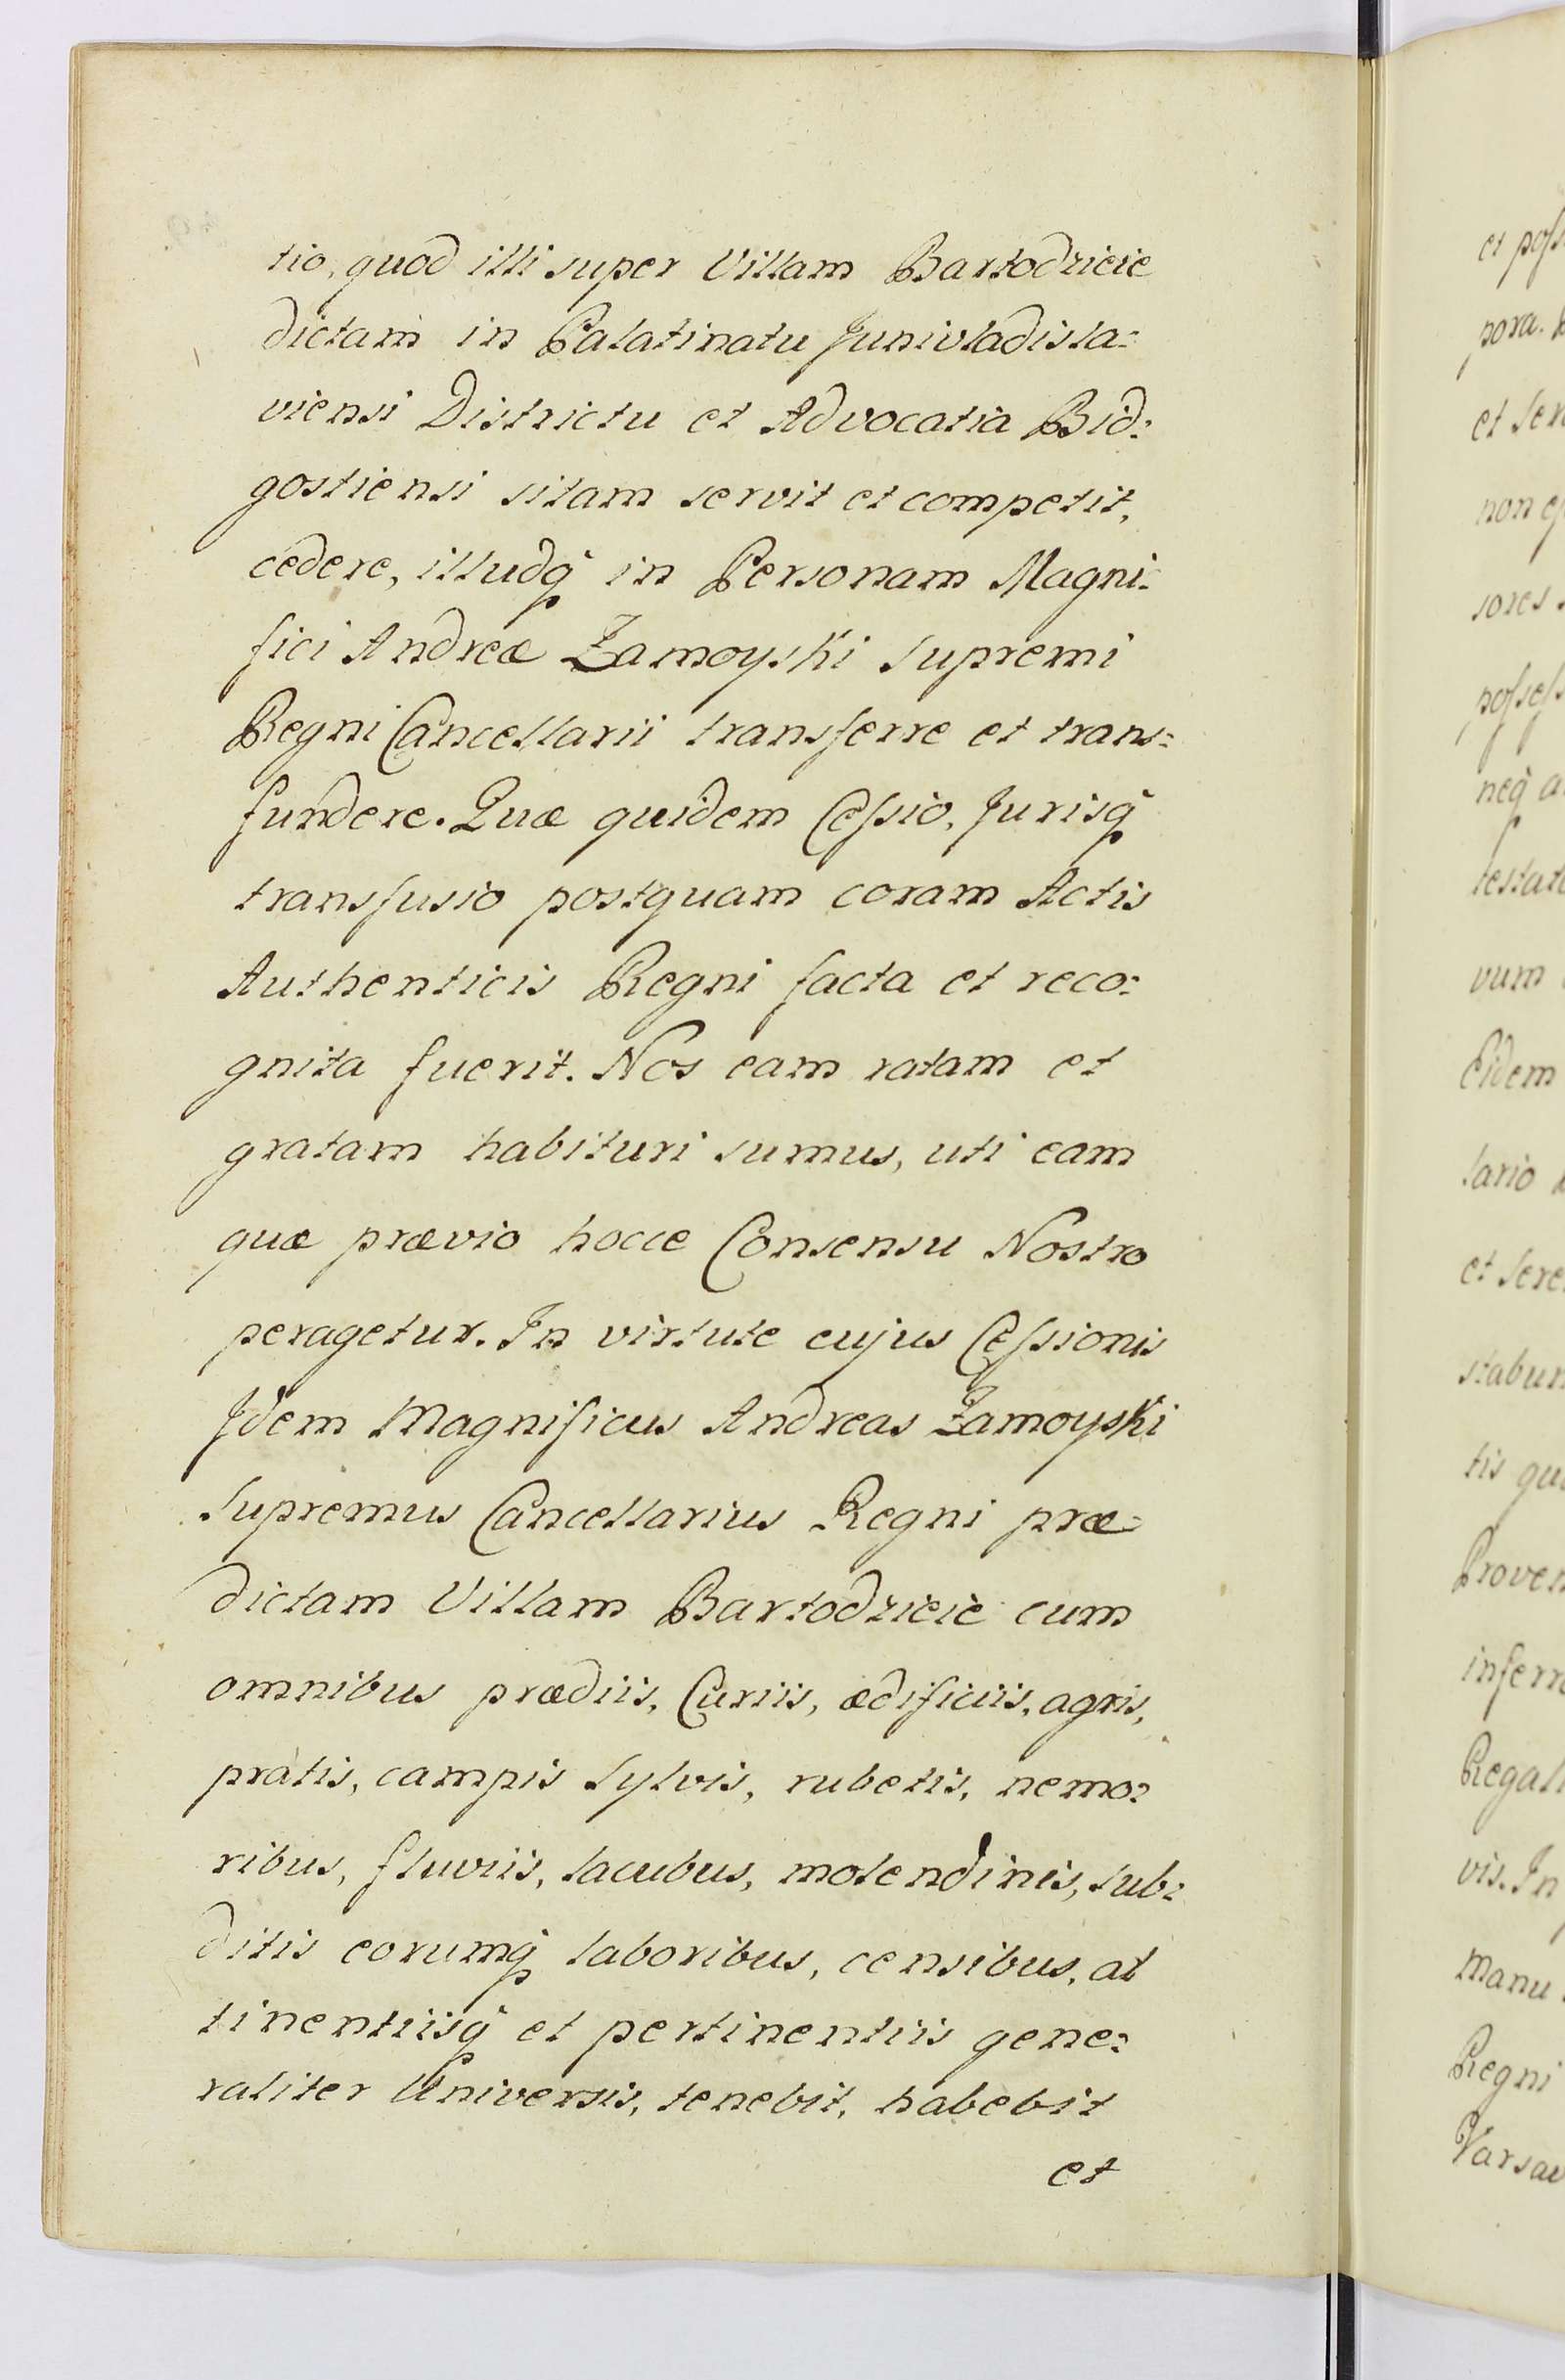 tio, quod illi super Villam Bartodzieie
dictam in Palatinatu Junivladisla=
viensi Districtu et Advocatia Bid=
gostiensi sitam servit et competit,
cedere, illudq̃ in Personam Magni=
fici Andreæ Zamoyski Supremi
Regni Cancellarii transferre et trans=
fundere. Quæ quidem Cessio, Jurisq̃
transfusio postquam coram Actis
Authenticis Regni facta et reco=
gnita fuerit. Nos eam ratam et
gratam habituri sumus, uti eam
quæ prævio hocce Consensu Nostro
peragetur. In virtute cujus Cessionis
Idem Magnificus Andreas Zamoyski
Supremus Cancellarius Regni præ=
dictam Villam Bartodzieie cum
omnibus prædiis, Curiis, ædificiis, agris,
pratis, campis Sylvis, rubetis, nemo=
ribus, fluviis, lacubus, molendinis, sub=
ditis eorumq̃ laboribus, censibus, at
tinentiisq̃ et pertinentiis gene=
raliter Universis, tenebit, habebit
et
et poss
pora.
et Ser
non
sores
possess
neq̃ a
testat
vum
Eidem
lario
et Sere
stabun
tis qu
Proven
inferr
Regal
vis. In
Manu
Regni
Varsav